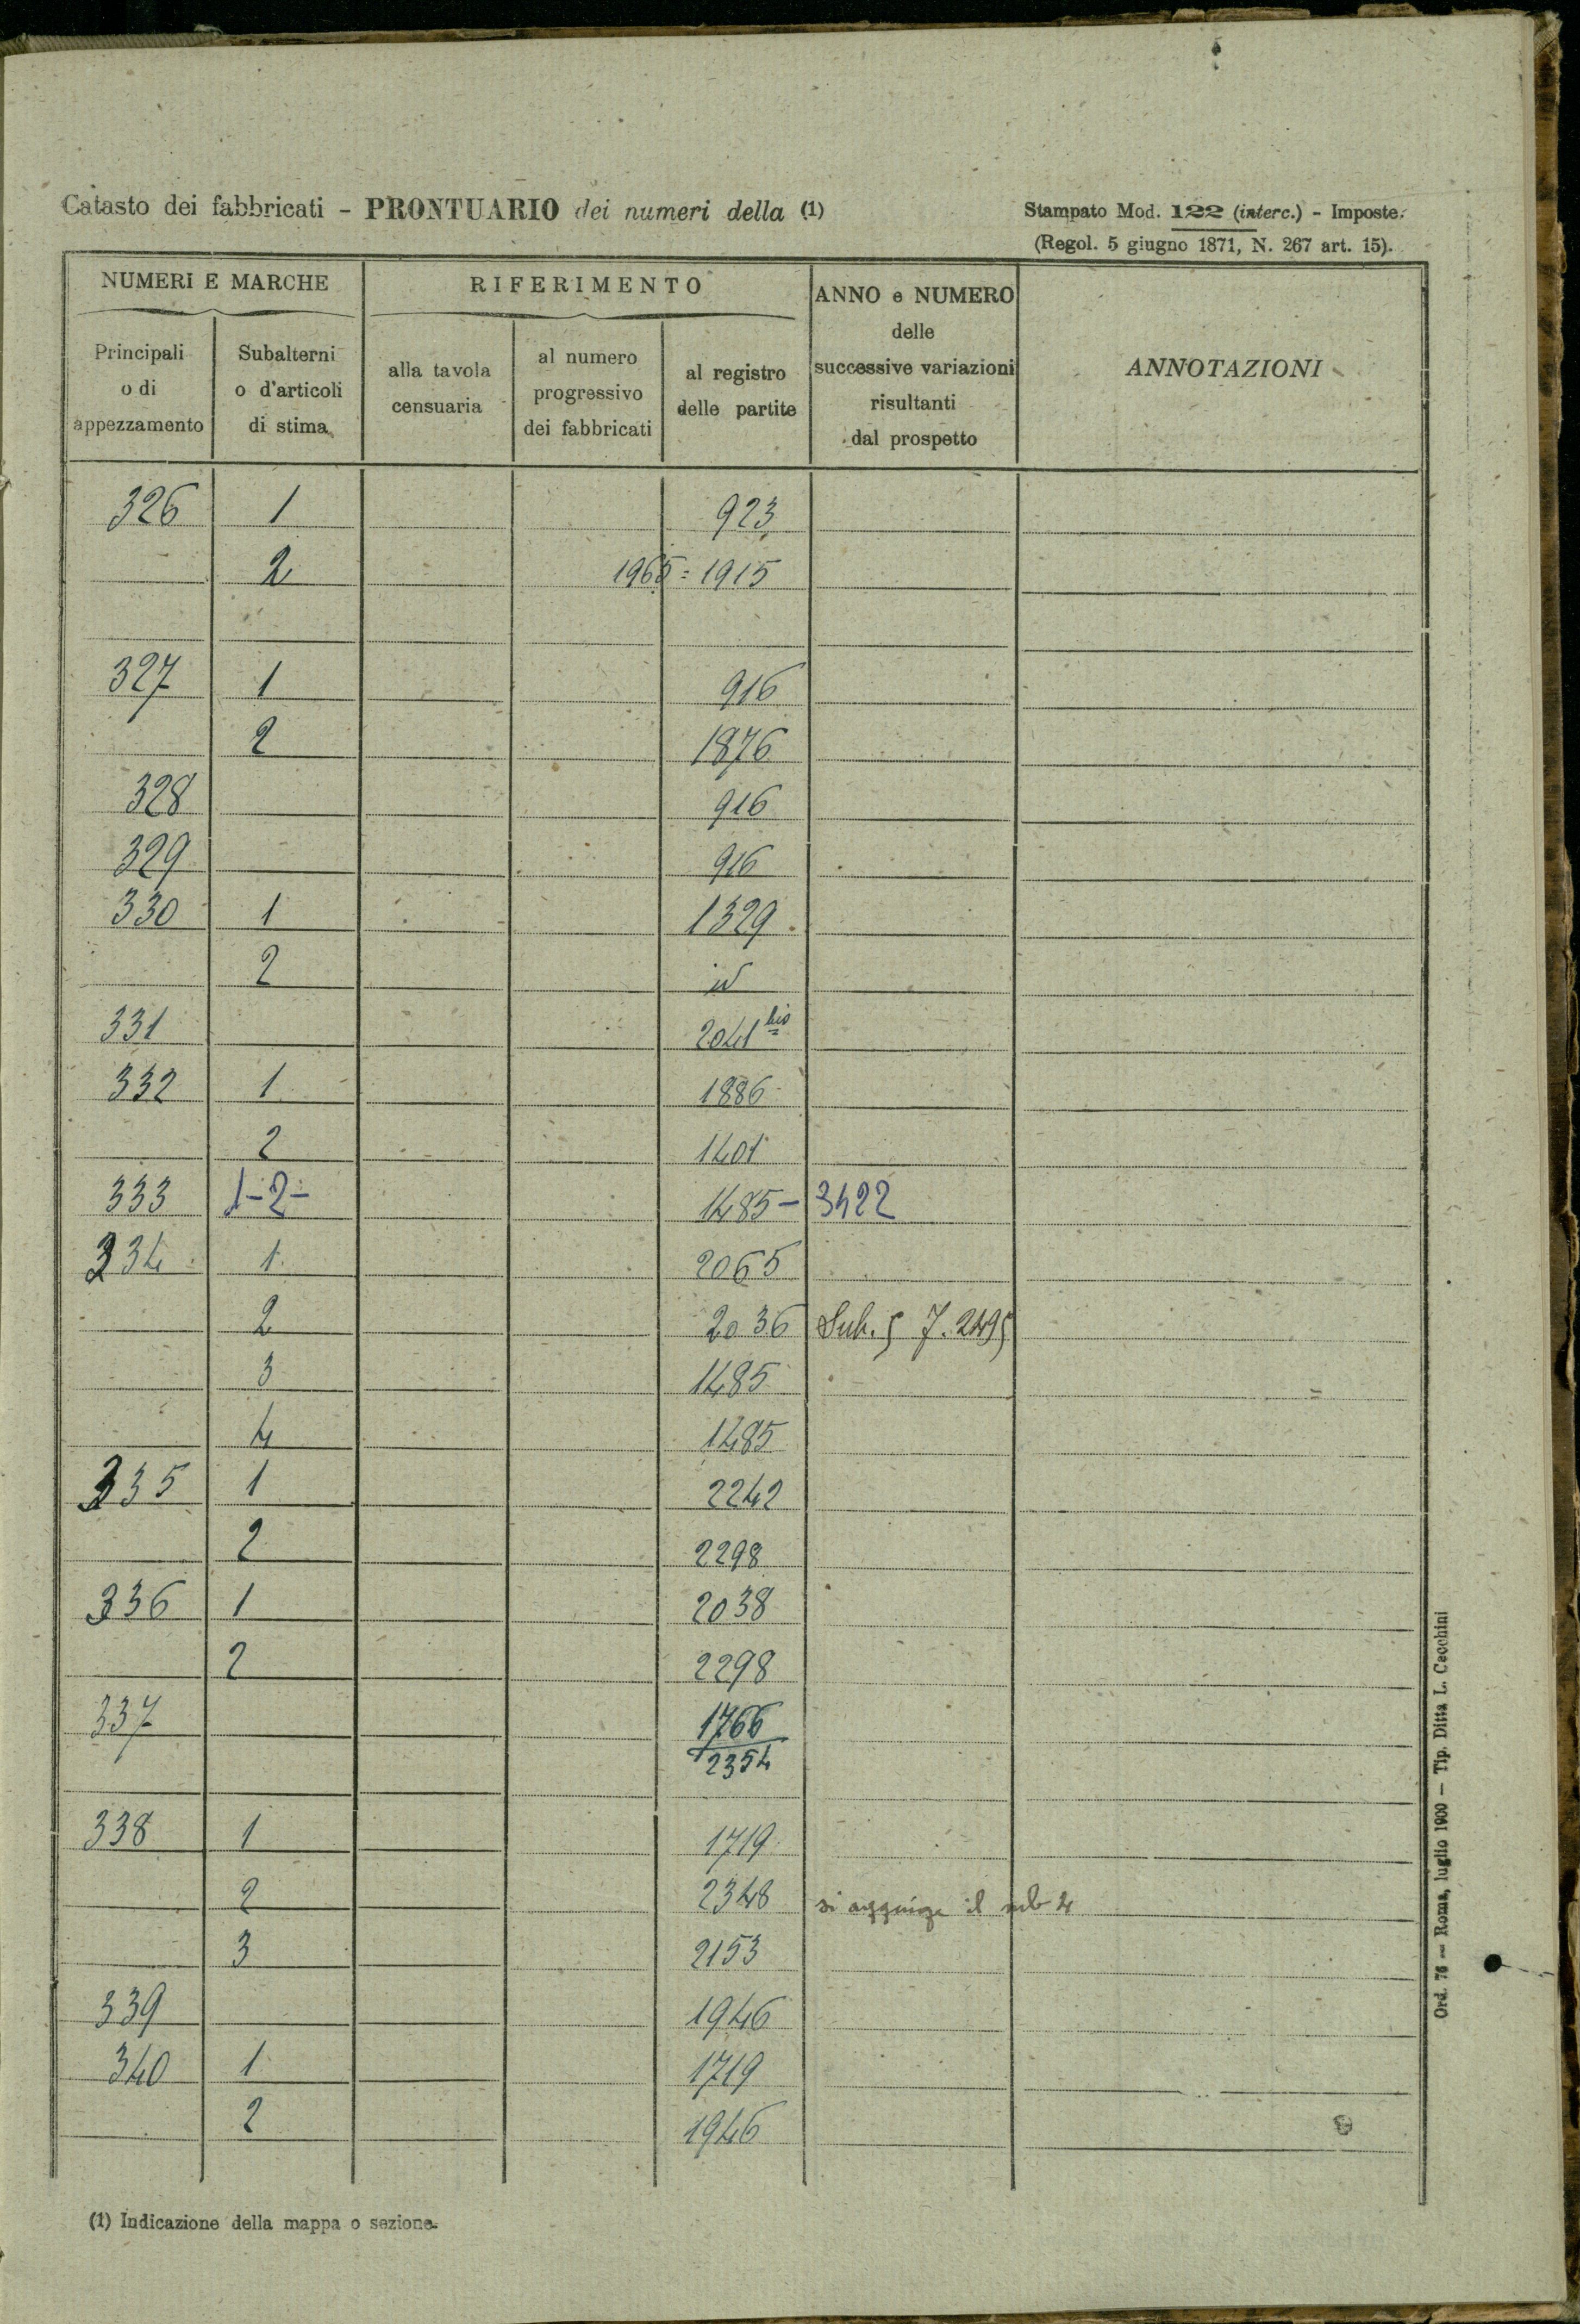 Catasto dei fabbricati - PRONTUARIO dei numeri della (1)
Stampato Mod. 122 (interc.) - Imposte.
(Regol. 5 giugno 1871, N. 267 art. 15).
NUMERI E MARCHE
RIFERIMENTO
ANNO e NUMERO
delle
successive variazioni
risultanti
dal prospetto
ANNOTAZIONI
Principali
o di
appezzamento
Subalterni
o d'articoli
di stima
alla tavola
censuaria
al numero
progressivo
dei fabbricati
al registro
delle partite
326 1 923
2 1965 = 1915
327 1 916
2 1876
328 916
329 916
330 1 1329
2 id
331 2041 bis
332 1 1886
2 1401
333 1-2- 1485 - 3422
334 1 2065
2 2036 Sub. 5 7. 2495
3 1485
4 1485
335 1 2242
2 2298
336 1 2038
2 2298
337 1766
2354
338 1 1719
2 2348 si aggiunge il sub 4
3 2153
339 1946
340 1 1719
2 1946
(1) Indicazione della mappa o sezione.
Ord. 76 — Roma, luglio 1900 — Tip. Ditta L. Cecchini